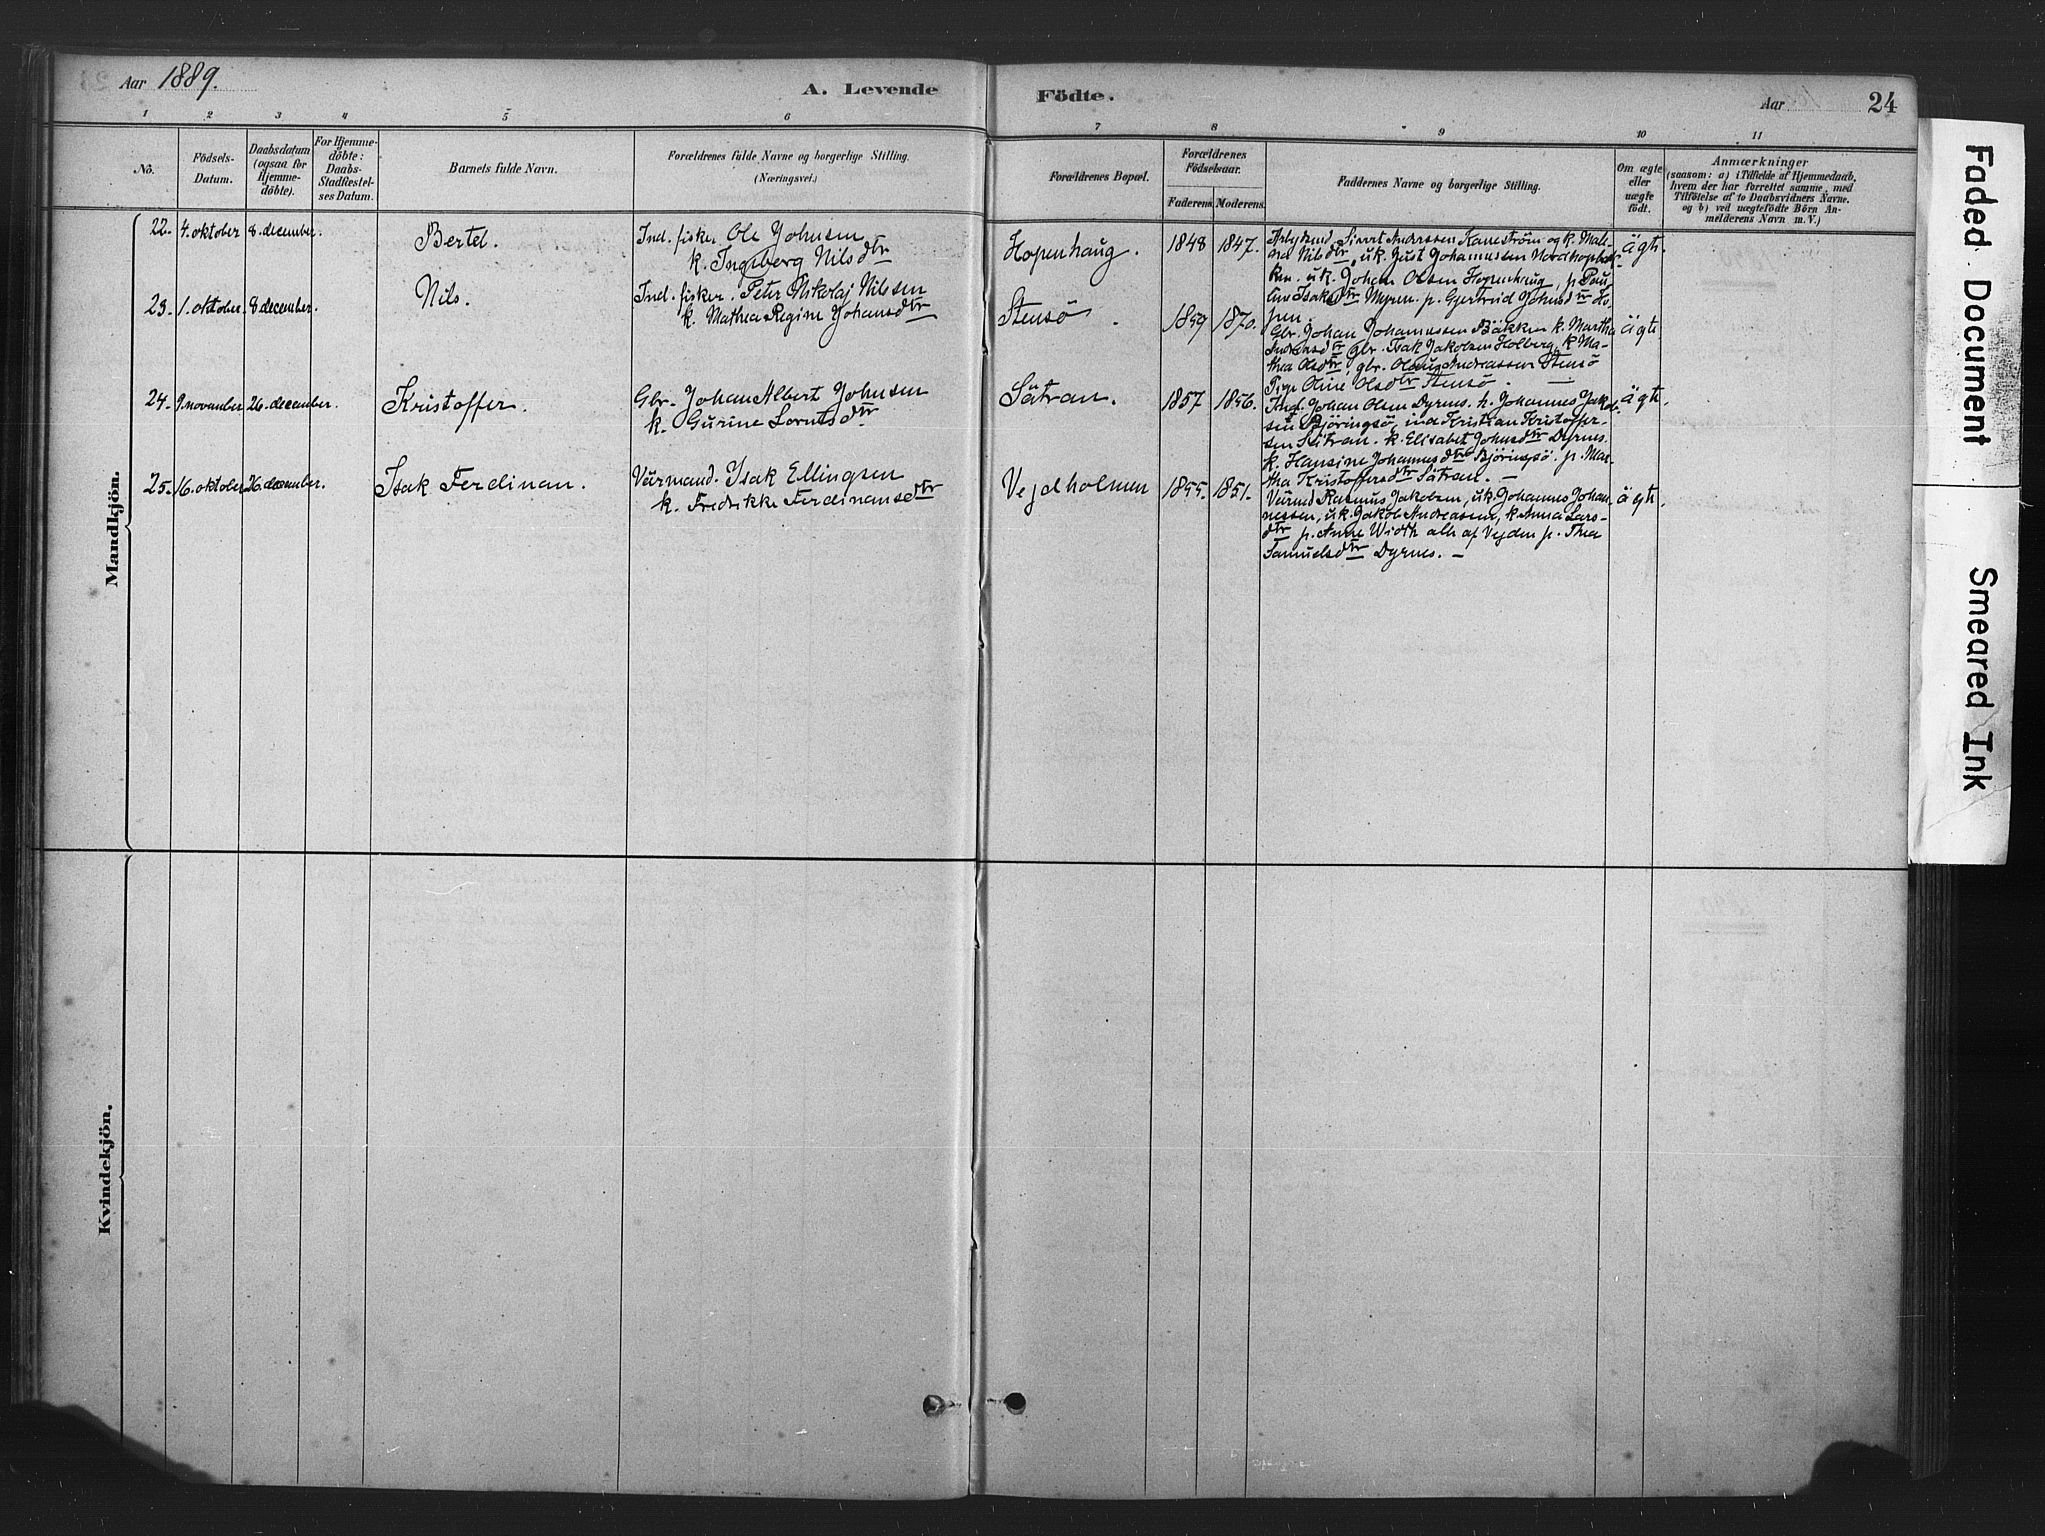 Aar 1889.
A. Levende
Födte.
Aar
24
1 2 3 4 5 6 7 8 9 10 11
No.
Födsels-
Datum.
Daabsdatum
(ogsaa for
Hjemme-
döbte).
For Hjemme-
döbte:
Daabs-
Stadfæstel-
ses Datum.
Barnets fulde Navn.
Forældrenes fulde Navne og borgerlige Stilling.
(Næringsvei.)
Forældrenes Bopæl.
Forældrenes
Födselsaar.
Faderens.
Moderens.
Faddernes Navne og borgerlige Stilling.
Om ægte
eller
uægte
födt.
Anmærkninger
(saasom: a) i Tilfælde af Hjemmedaab,
hvem der har forrettet samme, med
Tilföielse af to Daabsvidners Navne.
og b) ved uægtefödte Börn An-
melderens Navn m. V.)
Mandkjön.
22. 4. oktober 8. december. Bertel. Ind. fisker Ole Johnsen
k. Ingeborg Nilsdtr
Hopenhaug. 1848 1847.
Arbejdsmd Sivert Andrssen Kaneström og k. Male-
na Nilsdtr, u.k. Just Johannessen Nordhopbak-
ken. u.k. Johan Olsen Hopenhaug, p. Paul
ine Isaksdtr Myren. p. Gjertrud Johnsdtr Ho-
pen.
ägte.
23. 1. oktober 8 december. Nils. Ind. fisker. Peter Nikolaj Nilssen
k. Mathea Regine Johansdtr
Stensö. 1859 1870.
Gbr. Johan Johannessen Bäkken k. Martha
Andersdtr, gbr. Isak Jakobsen Holberg, k. Ma-
thea Olsdtr, gbr. Olaus Andreassen Stensö
Pige Oline Olsdtr Stensö. —
ägte
24. 9. november 26. december. Kristoffer. Gbr. Johan Albert Johnsen
k. Gurine Lorntsdtr
Sätran. 1857 1856.
Ind. Johan Olsen Dyrnes. h. Johannes Jakob-
sen Björingsö, ind Kristian Kristoffer-
sen Sätran. k. Elisabet Johnsdtr Dyrnes.
k. Hansine Johannesdtr Björingsö. p. Mar-
tha Kristoffersdtr Sätran. —
ägte.
25. 16. oktober 26. december. Isak Ferdinan. Värmand. Isak Ellingsen
k. Fredrikke Ferdinansdtr
Vejdholmen 1855. 1851.
Värmd Rasmus Jakobsen, u.k. Johannes Johan-
nessen, u.k. Jakob Andreassen, k. Anna Lars-
dtr p. Anne Width alle af Vejden p. Thea
Samuelsdtr Dyrnes. —
ägte.
Kvindekjön.
Faded Document
Smeared Ink